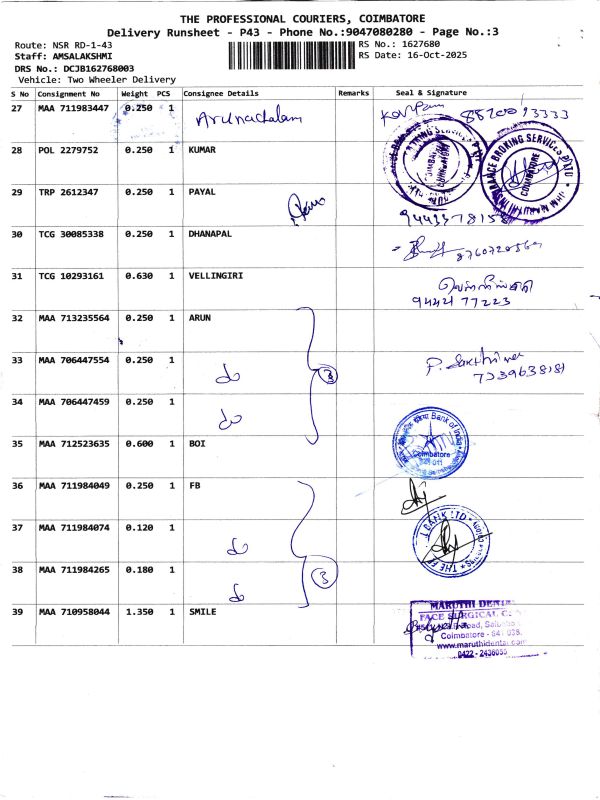 THE PROFESSIONAL COURIERS, COIMBATORE
Delivery Runsheet - P43 - Phone No.:9047080280 - Page No.:3
Route: NSR RD-1-43
RS No.: 1627680
Staff: AMSALAKSHMI
RS Date: 16-Oct-2025
DRS No.: DCJB162768003
Vehicle: Two Wheeler Delivery
S No Consignment No Weight PCS Consignee Details Remarks Seal & Signature
27 MAA 711983447 0.250 1 Arunachalam
28 POL 2279752 0.250 1 KUMAR
29 TRP 2612347 0.250 1 PAYAL
30 TCG 30085338 0.250 1 DHANAPAL
31 TCG 10293161 0.630 1 VELLINGIRI
94421 77223
32 MAA 713235564 0.250 1 ARUN
33 MAA 706447554 0.250 1 do 3
7339638181
34 MAA 706447459 0.250 1 do
Bank of India
Coimbatore
641 011
35 MAA 712523635 0.600 1 BOI
36 MAA 711984049 0.250 1 FB
37 MAA 711984074 0.120 1 do
BANK LTD
38 MAA 711984265 0.180 1 do 3
39 MAA 710958044 1.350 1 SMILE
MARUTHI DENTAL
FACE SURGICAL
Road, Saibaba
Coimbatore - 641 038.
www.maruthidental.com
0422 - 2436055